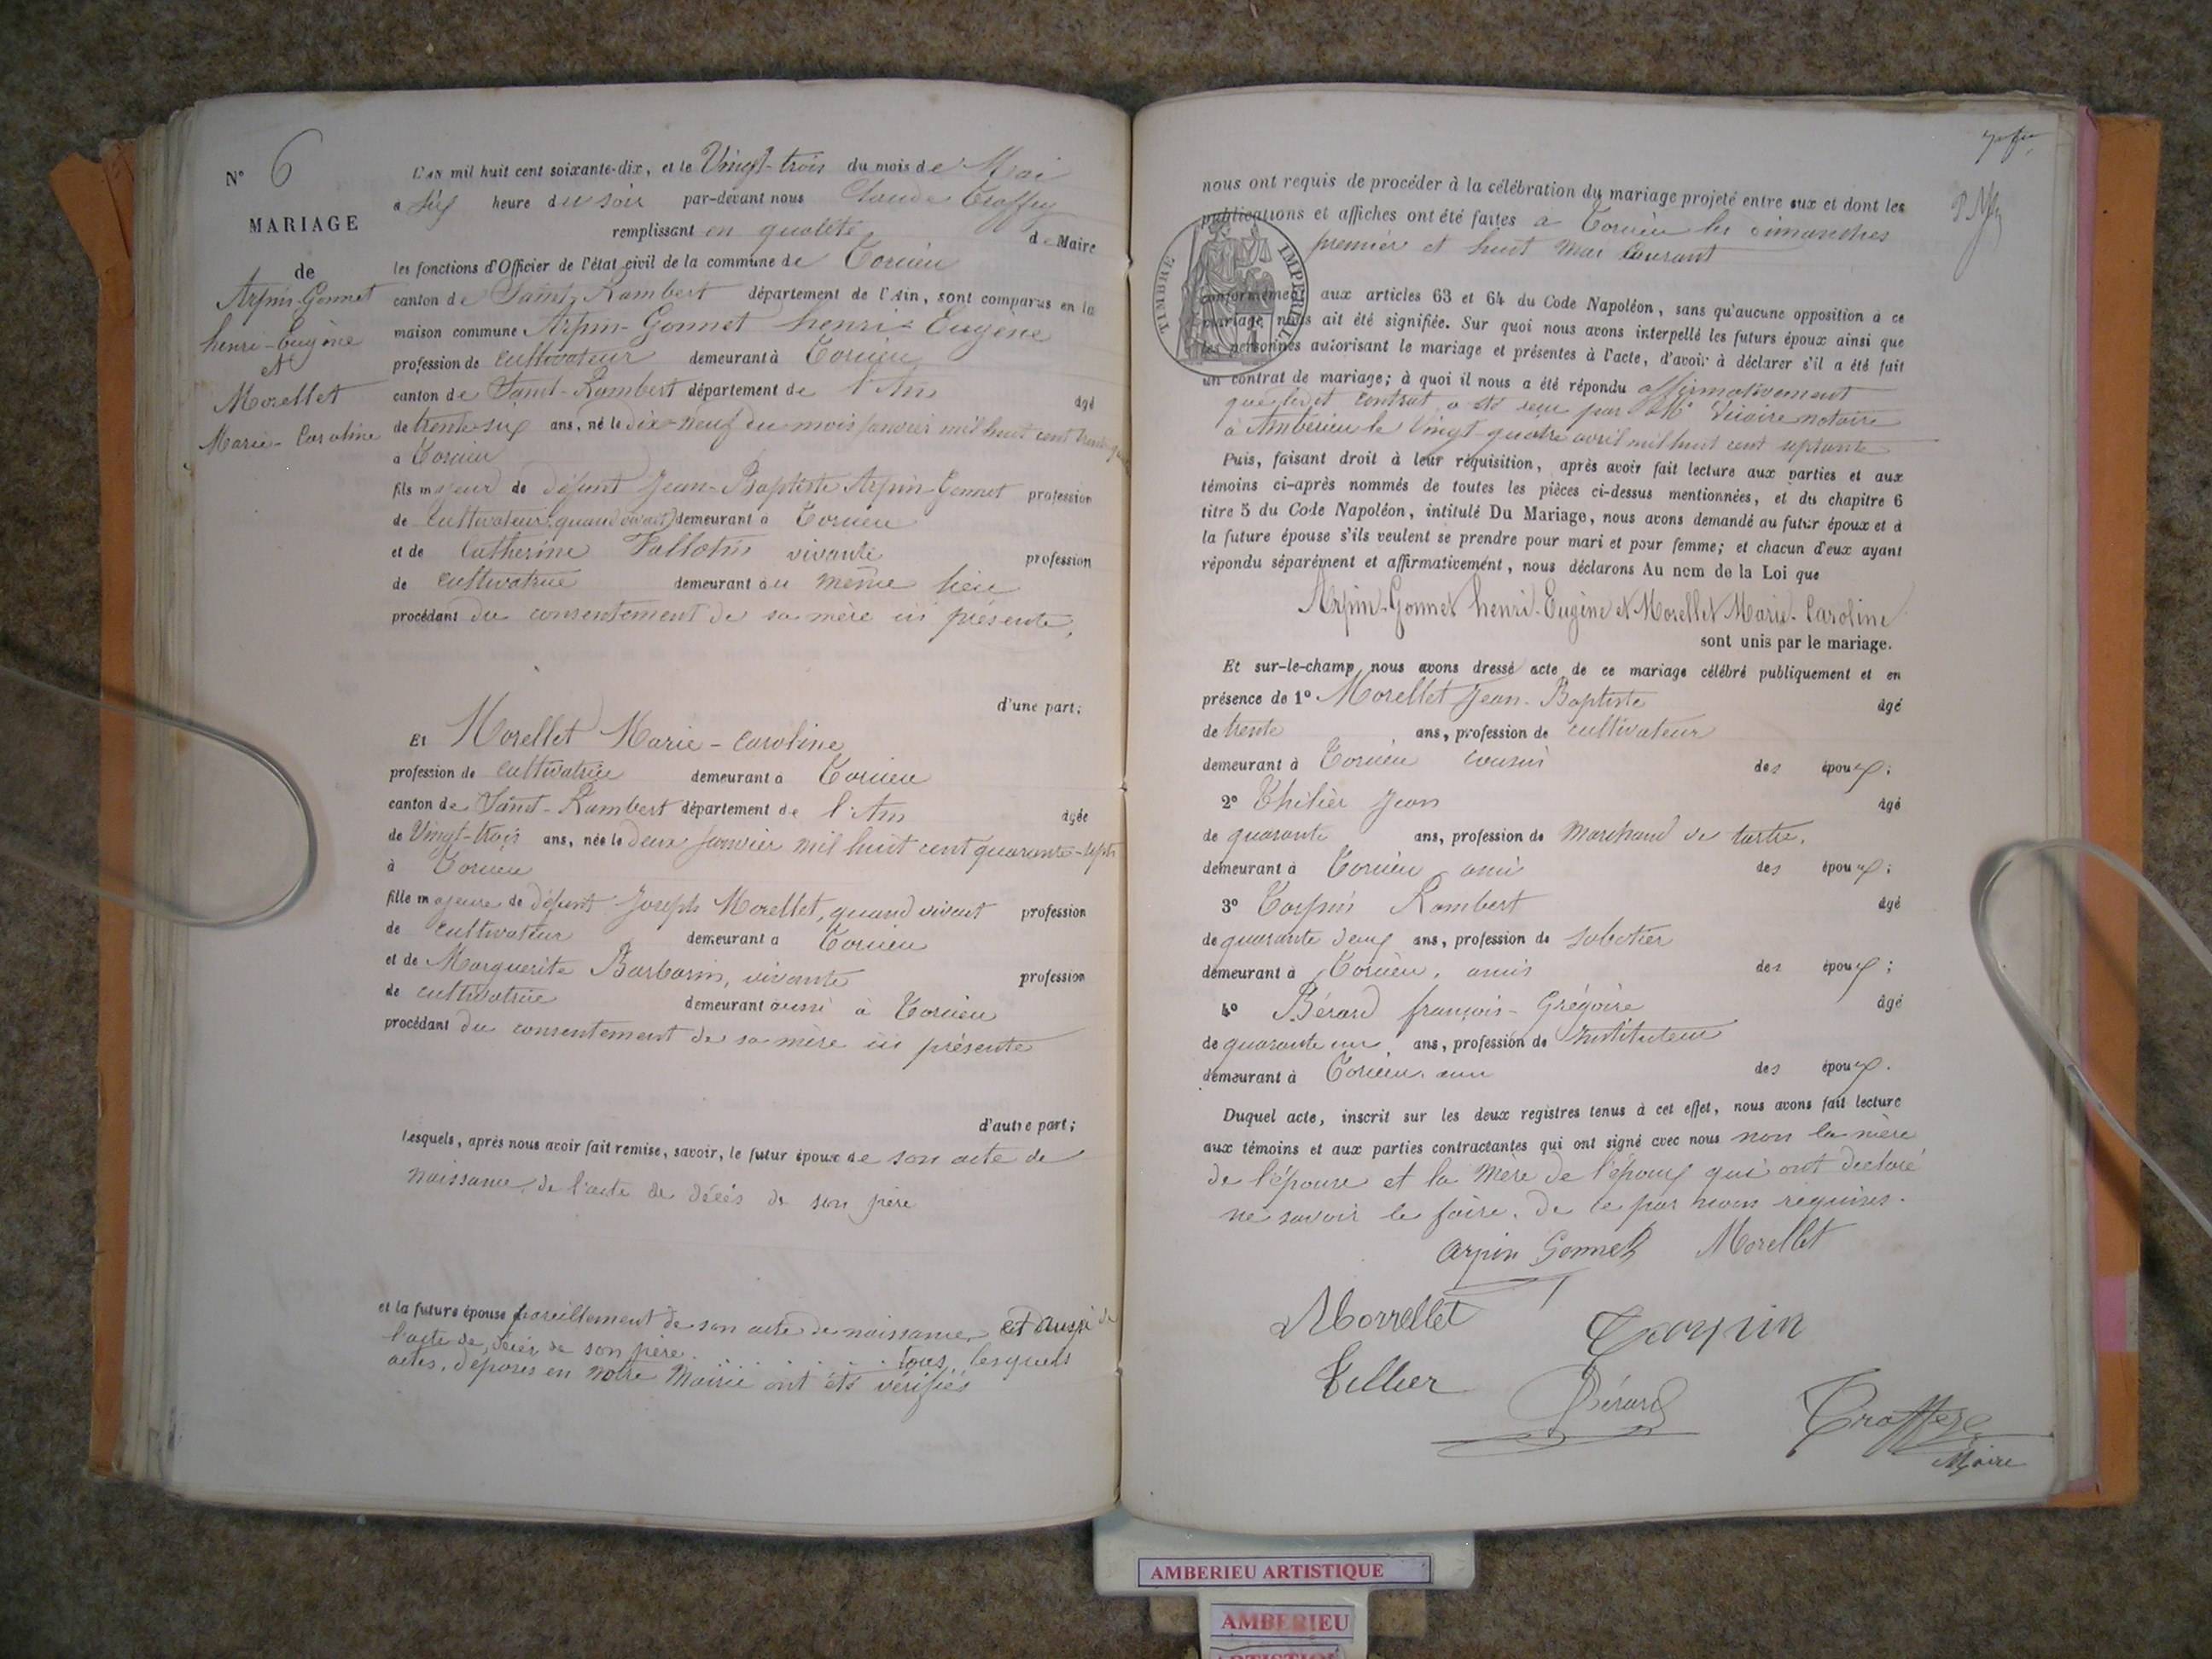 N° 6
MARIAGE
de
Arpin-Gonnet
henri-Eugène
et
Morellet
Marie-Caroline
L'AN mil huit cent soixante-dix, et le Vingt-trois du mois de Mai
à six heure du soir par-devant nous Claude Troffey
remplissant en qualité de Maire
les fonctions d'Officier de l'état civil de la commune de Torcieu
canton de Saint-Rambert département de l'Ain, sont comparus en la
maison commune Arpin-Gonnet henri-Eugène
profession de cultivateur demeurant à Torcieu
canton de Saint-Rambert département de l'Ain âgé
de trente-six ans, né le dix-neuf du mois janvier mil huit cent
à Torcieu
fils majeur de défunt Jean-Baptiste Arpin-Gonnet profession
de cultivateur quand vivait demeurant à Torcieu
et de Catherine vivante profession
de cultivatrice demeurant au même lieu
procédant du consentement de sa mère ici présente,
d'une part;
Et Morellet Marie-Caroline
profession de cultivatrice demeurant à Torcieu
canton de Saint-Rambert département de l'Ain âgée
de Vingt-trois ans, née le deux janvier mil huit cent quarante-sept
à Torcieu
fille majeure de défunt Joseph Morellet, quand vivait profession
de cultivateur demeurant à Torcieu
et de Marguerite Barbarin, vivante profession
de cultivatrice demeurant aussi à Torcieu
procédant du consentement de sa mère ici présente
d'autre part;
Lesquels, après nous avoir fait remise, savoir, le futur époux de son acte de
naissance, de l'acte de décès de son père
et la future épouse pareillement de son acte de naissance et aussi de
l'acte de décès de son père. . . . . . tous lesquels
actes, déposés en notre Mairie ont été vérifiés
nous ont requis de procéder à la célébration du mariage projeté entre eux et dont les
publications et affiches ont été faites à Torcieu les dimanches
premier et huit mai courant
TIMBRE IMPERIAL
conformément aux articles 63 et 64 du Code Napoléon, sans qu'aucune opposition à ce
mariage nous ait été signifiée. Sur quoi nous avons interpellé les futurs époux ainsi que
les personnes autorisant le mariage et présentes à l'acte, d'avoir à déclarer s'il a été fait
un contrat de mariage; à quoi il nous a été répondu affirmativement
que ledit contrat a été reçu par Me Vicaire notaire
à Ambérieu le Vingt-quatre avril mil huit cent septante
Puis, faisant droit à leur réquisition, après avoir fait lecture aux parties et aux
témoins ci-après nommés de toutes les pièces ci-dessus mentionnées, et du chapitre 6
titre 5 du Code Napoléon, intitulé Du Mariage, nous avons demandé au futur époux et à
la future épouse s'ils veulent se prendre pour mari et pour femme; et chacun d'eux ayant
répondu séparément et affirmativement, nous déclarons Au nom de la Loi que
Arpin-Gonnet henri-Eugène et Morellet Marie-Caroline
sont unis par le mariage.
Et sur-le-champ nous avons dressé acte de ce mariage célébré publiquement et en
présence de 1° Morellet Jean-Baptiste âgé
de trente ans, profession de cultivateur
demeurant à Torcieu cousin des époux;
2° Thilier Jean âgé
de quarante ans, profession de marchand de tartre,
demeurant à Torcieu ami des époux;
3° Torpin Rambert âgé
de quarante deux ans, profession de sabotier
demeurant à Torcieu, amis des époux;
4° Bérard françois-Grégoire âgé
de quarante un, ans, profession de Instituteur
demeurant à Torcieu, ami des époux.
Duquel acte, inscrit sur les deux registres tenus à cet effet, nous avons fait lecture
aux témoins et aux parties contractantes qui ont signé avec nous non la mère
de l'épouse et la mère de l'époux qui ont déclaré
ne savoir le faire, de ce par nous requises.
arpin Gonnet Morellet
Morrellet Torpin
Tillier Bérard
Troffey
Maire
AMBERIEU ARTISTIQUE
AMBERIEU
ARTISTIQUE